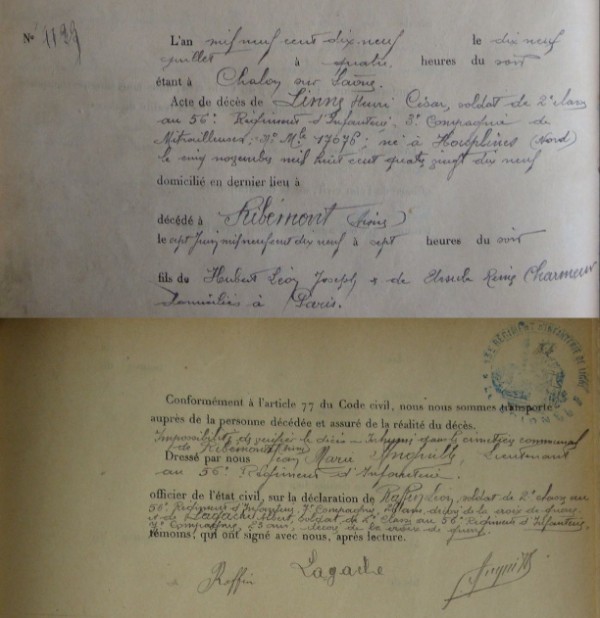 N° 1129
L'an mil neuf cent dix neuf le dix neuf
juillet à quatre heures du soir
étant à Chalon sur Saône
Acte de décès de Linne Henri César, soldat de 2e classe
au 56e Régiment d'Infanterie, 3e Compagnie de
Mitrailleuses, No Mle 17676, né à Houplines (Nord)
le cinq novembre mil huit cent quatre vingt dix neuf
domicilié en dernier lieu à
décédé à Ribémont (Aisne)
le sept Juin mil neuf cent dix neuf à sept heures du soir
fils de Hubert Léon Joseph & de Ursule Charmeux
domiciliés à Paris.
Conformément à l'article 77 du Code civil, nous nous sommes transporté
auprès de la personne décédée et assuré de la réalité du décès.
Impossibilité de vérifier le décès - Inhumé dans le cimetière communal
de Ribémont
Dressé par nous Jean Marie Lieutenant
au 56e Régiment d'Infanterie
officier de l'état civil, sur la déclaration de Roffin Léon, soldat de 2e classe au
56e Régiment d'Infanterie, 7e Compagnie, décoré de la croix de guerre
& de Lagache Albert, soldat de 2e Classe au 56e Régiment d'Infanterie
7e Compagnie, 23 ans, décoré de la croix de guerre,
témoins, qui ont signé avec nous, après lecture.
Roffin Lagache